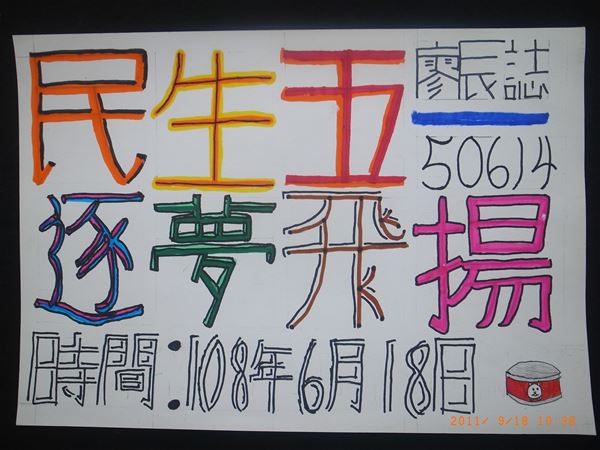 民生五
廖辰誌
50614
逐夢飛揚
時間:108年6月18日
2011/ 9/18 10:38